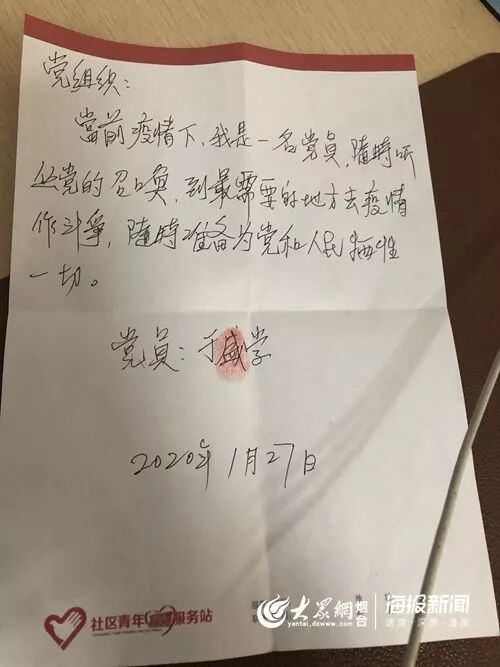 党组织：
當前疫情下，我是一名党员，隨時听
从党的召唤，到最需要的地方去疫情
作斗爭，隨時准备为党和人民牺牲
一切。
党員：于盛学
2020年1月27日
社区青年 服务站
大眾網 烟台 海报新闻
yantai.dzwww.com 速度·深度·温度